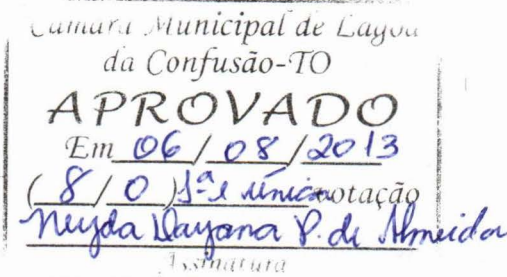 Câmara Municipal de Lagoa
da Confusão-TO
APROVADO
Em 06/08/2013
(8/0) 1ª e única votação
Neyda Dayana P. de Almeida
Assinatura